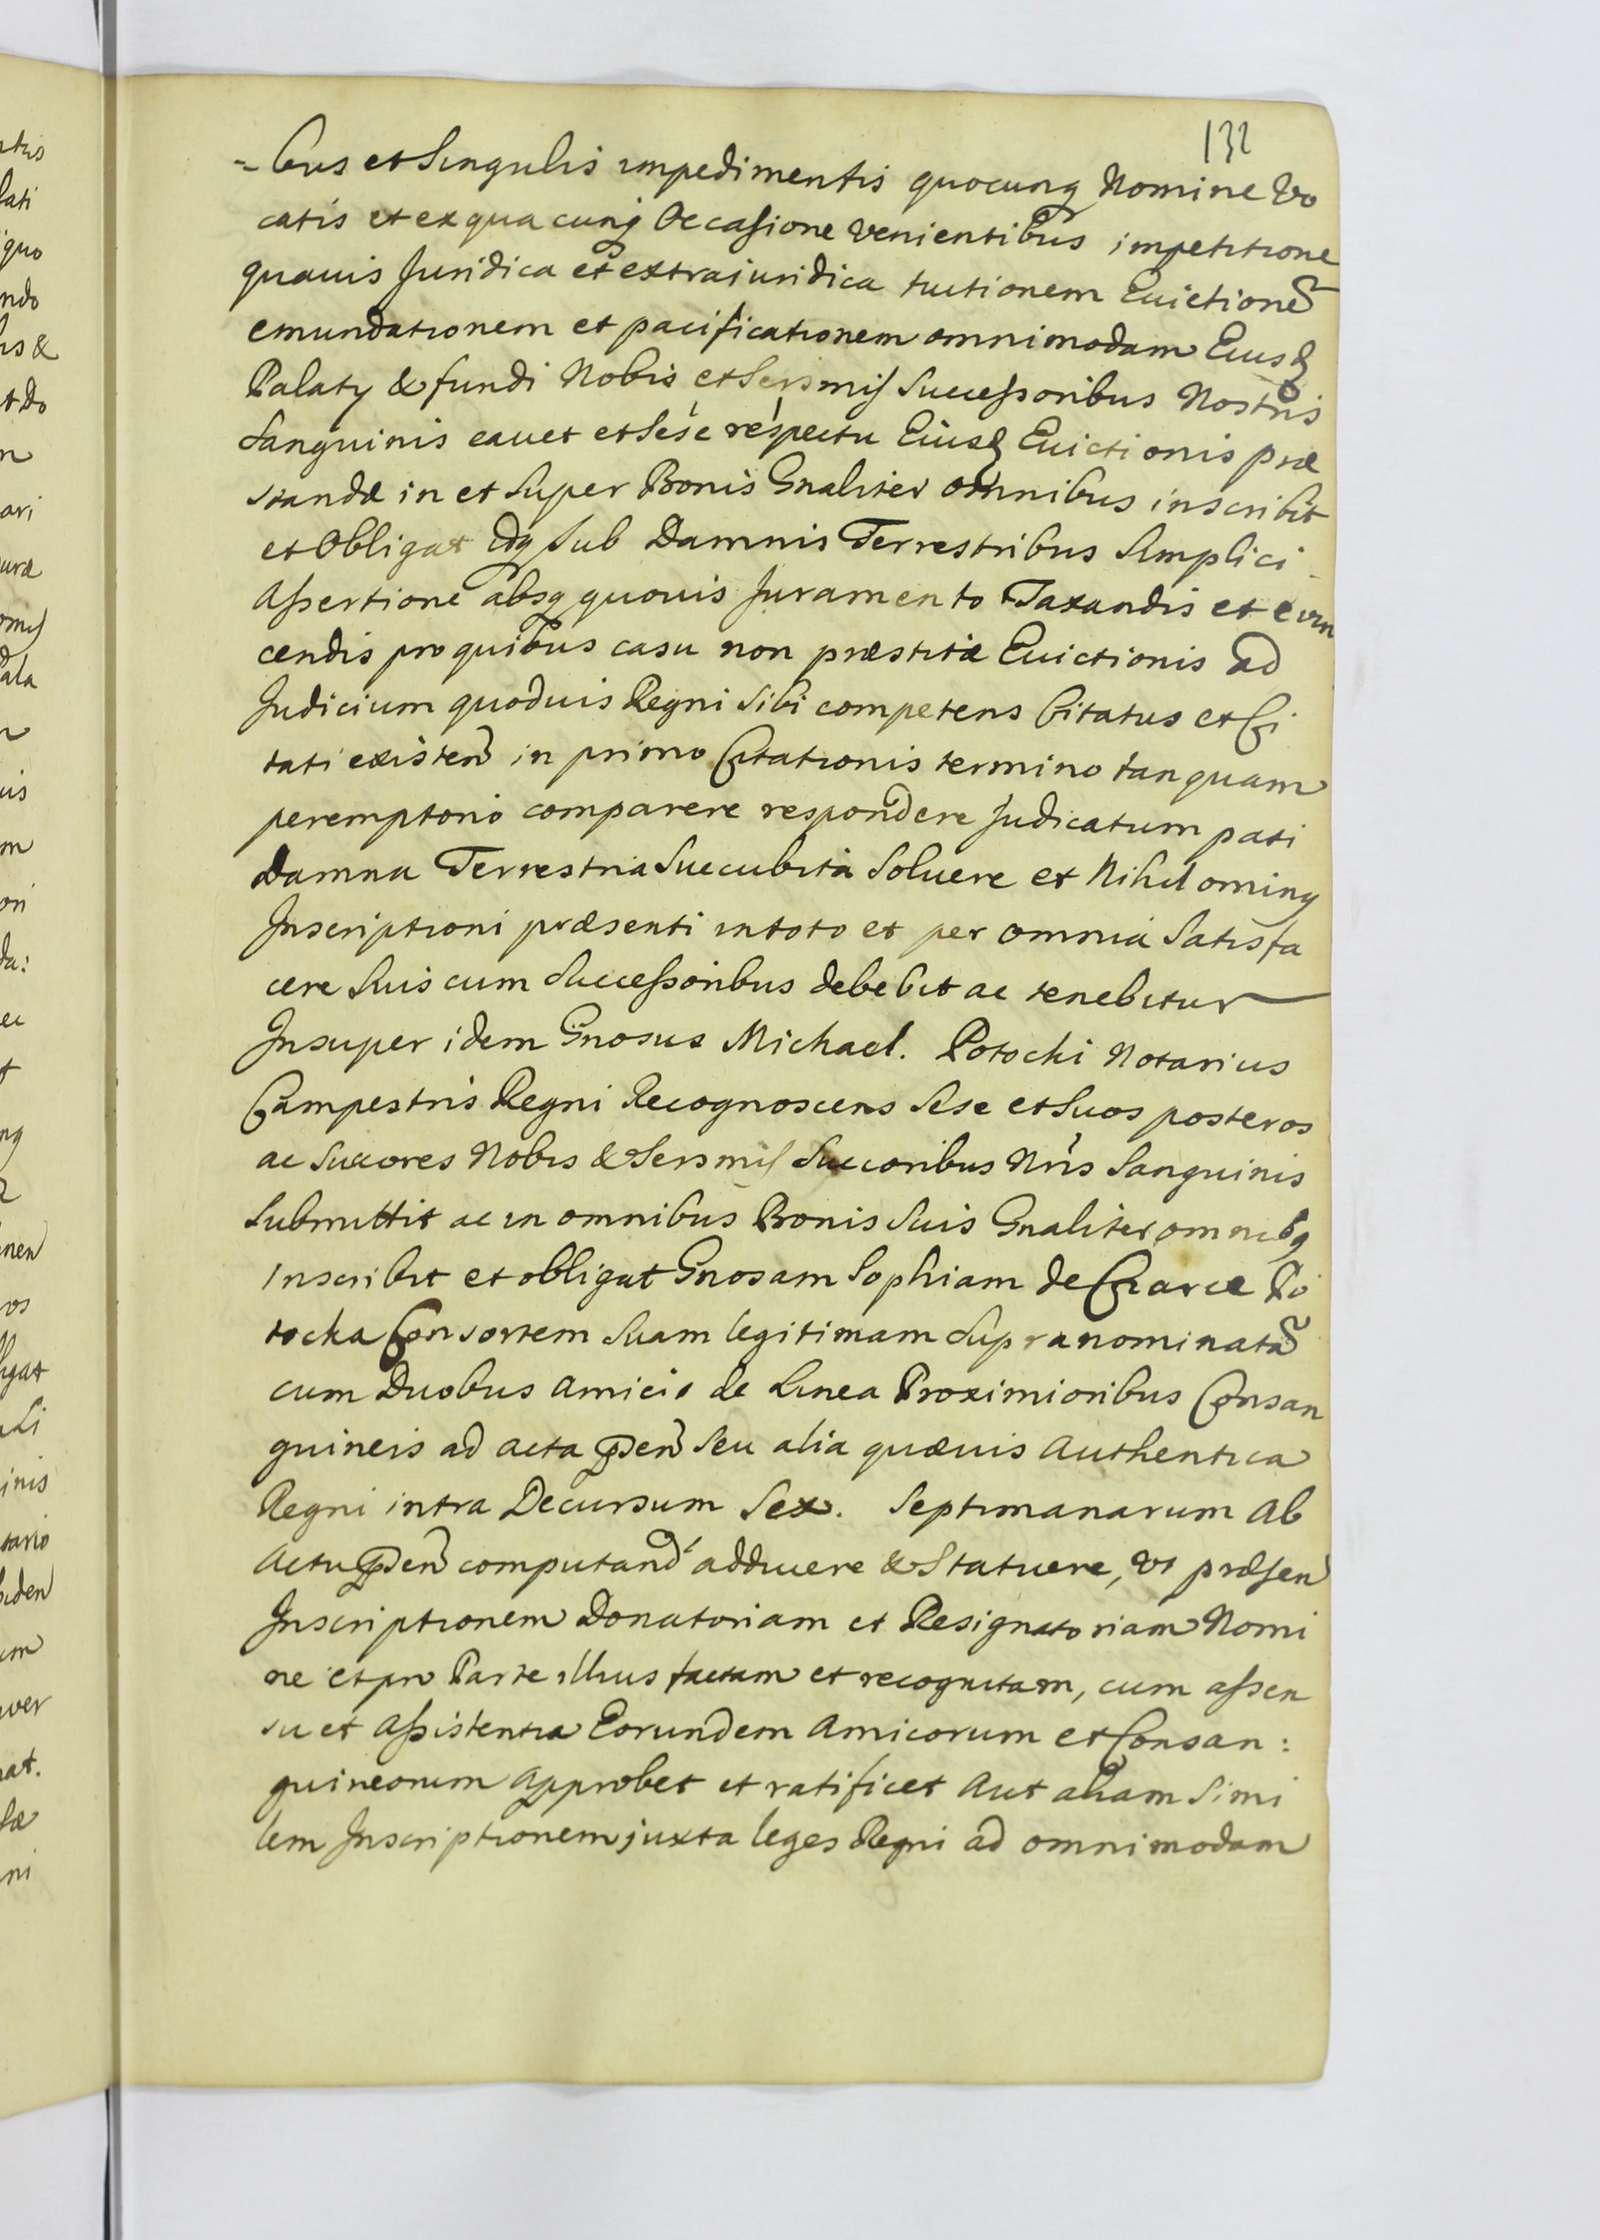 132
- bus et Singulis impedimentis quocunq Nomine Vo
catis et ex qua cunq Occasione venientibus impetitione
quavis Juridica et extrajuridica tutionem Euictione
emundationem et pacificationem omnimodam Eiusd
Palaty & fundi Nobis et Sersmis Successoribus Nostris
Sanguinis cauet et Sese respectu Eiusd Euictionis præ
standæ in et Super Bonis Gnaliter omnibus inscribit
et Obligat Idq Sub Damnis Terrestribus Simplici
Assertione absq quouis Juramento Taxandis et evin
cendis pro quibus casu non præstitæ Euictionis ad
Judicium quoduis Regni Sibi competens Citatus et Ci
tati existen in primo Citationis termino tanquam
peremptorio comparere respondere Judicatum pati
Damna Terrestria Succubita Soluere et Nihilominq
Inscriptioni præsenti in toto et per omnia Satisfa
cere Suis cum Successoribus debebit ac tenebitur
Insuper idem Gnosus Michael. Potocki Notarius
Campestris Regni Recognoscens Sese et Suos posteros
ac Succores Nobis & Sersmis Succoribus Nris Sanguinis
Submittit ac in omnibus Bonis Suis Gnaliter omnibq
inscribit et obligat Gnosam Sophiam de Czarce Po
tocka Consortem Suam legitimam Supranominata
cum Duobus Amicis de Linea Proximioribus Consan
guineis ad acta psen Seu alia quævis Authentica
Regni intra Decursum Sex. Septimanarum Ab
Actu psen computand adducere & Statuere, vt præsen
Inscriptionem Donatoriam et Resignatoriam Nomi
ne et pro Parte illius factam et recognitam, cum assen
su et Assistentia Eorundem Amicorum et Consan:
guineorum Approbet et ratificet Aut aliam Simi
lem Inscriptionem juxta leges Regni ad omnimodam